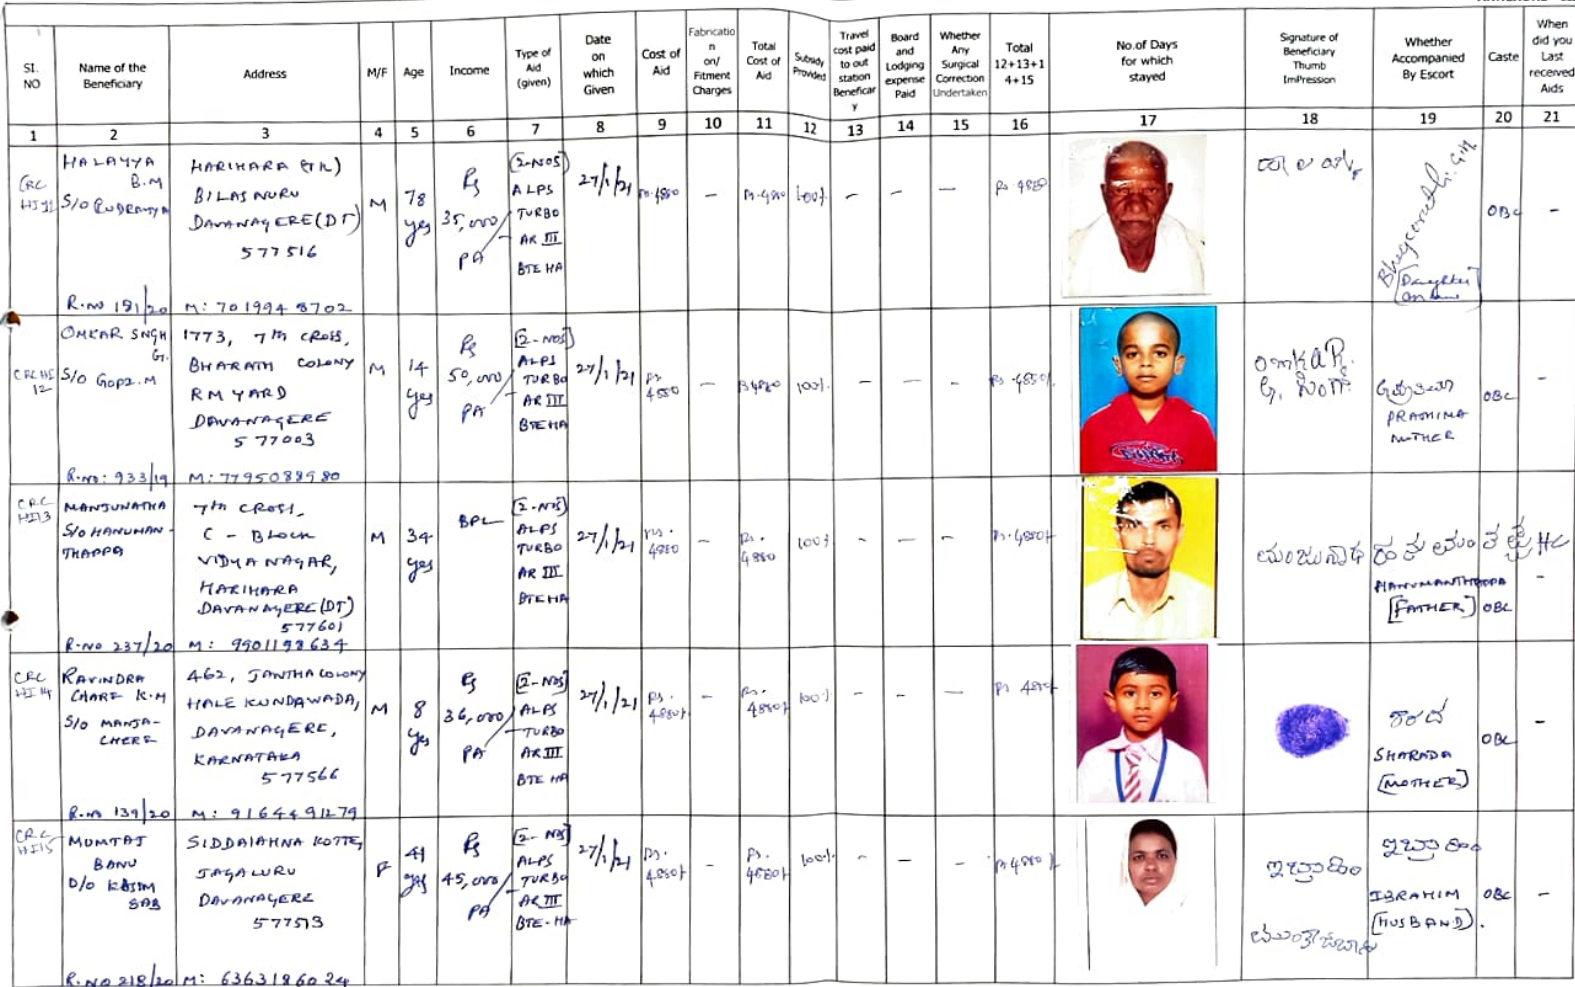 SI. NO
Name of the Beneficiary
Address
M/F
Age
Income
Type of Aid (given)
Date on which Given
Cost of Aid
Fabrication on/ Fitment Charges
Total Cost of Aid
Subsidy Provided
Travel cost paid to out station Beneficary
Board and Lodging expense Paid
Whether Any Surgical Correction Undertaken
Total 12+13+14+15
No.of Days for which stayed
Signature of Beneficiary Thumb ImPression
Whether Accompanied By Escort
Caste
When did you Last received Aids
1 2 3 4 5 6 7 8 9 10 11 12 13 14 15 16 17 18 19 20 21
CRC
HALAYYA B.M
S/O RUDRAYYA
R.NO 181/20
HARIHARA (TK)
BILASNURU
DAVANAGERE (DT)
577516
M: 7019948702
M
78 yes
Rs 35,000/- PA
[2-NOS]
ALPS
TURBO
AR III
BTE HA
27/1/21
Rs.4880
-
Rs.4880
100%
-
-
-
Rs 4880
Bhageerathi. G.M
[Daughter in law]
OBC
-
CRC HI 12
OMKAR SNGH G.
S/O GOPI.M
R.no: 933/19
1773, 7th CROSS,
BHARATH COLONY
RM YARD
DAVANAGERE
577003
M: 7795088980
M
14 yes
Rs 50,000/- PA
[2-NOS]
ALPS
TURBO
AR III
BTE HA
27/1/21
Rs. 4880
-
Rs 4880
100%
-
-
-
Rs 4880/-
OmKAR.
G. ಸಿಂಗ್
MOTHER
OBC
-
CRC HI13
MANJUNATHA
S/O HANUMAN-
THAPPA
R.NO 237/20
7th CROSS,
C - BLOCK
VIDYANAGAR,
HARIHARA
DAVANAGERE (DT)
577601
M: 9901198634
M
34 yes
BPL
[2-NOS]
ALPS
TURBO
AR III
BTE HA
27/1/21
Rs. 4880
-
Rs. 4880
100%
-
-
-
Rs.4880/-
ಮಂಜುನಾಥ
HANUMANTHAPPA
[FATHER]
OBC
-
CRC HI 14
RAVINDRA
CHARE K.M
S/O MANJA-
CHERE
R.no 139/20
462, JANTHA COLONY
HALE KUNDAWADA,
DAVANAGERE,
KARNATAKA
577566
M: 9164491279
M
8 yes
Rs 36,000/- PA
[2-NOS]
ALPS
TURBO
AR III
BTE HA
27/1/21
Rs. 4880/-
-
Rs. 4880/-
100%
-
-
-
Rs 4880/-
ಶಾರದ
SHARADA
[MOTHER]
OBC
-
CRC HI15
MUMTAJ
BANU
D/O KASIM
SAB
R.NO 218/20
SIDDAIAHNA KOTTE,
JAGALURU
DAVANAGERE
577513
M: 6363186024
F
41 yes
Rs 45,000/- PA
[2-NOS]
ALPS
TURBO
AR III
BTE-HA
27/1/21
Rs. 4880/-
-
Rs. 4880/-
100%
-
-
-
Rs 4880/-
ಇಬ್ರಾಹಿಂ
ಇಬ್ರಾಹಿಂ
IBRAHIM
[HUSBAND].
OBC
-